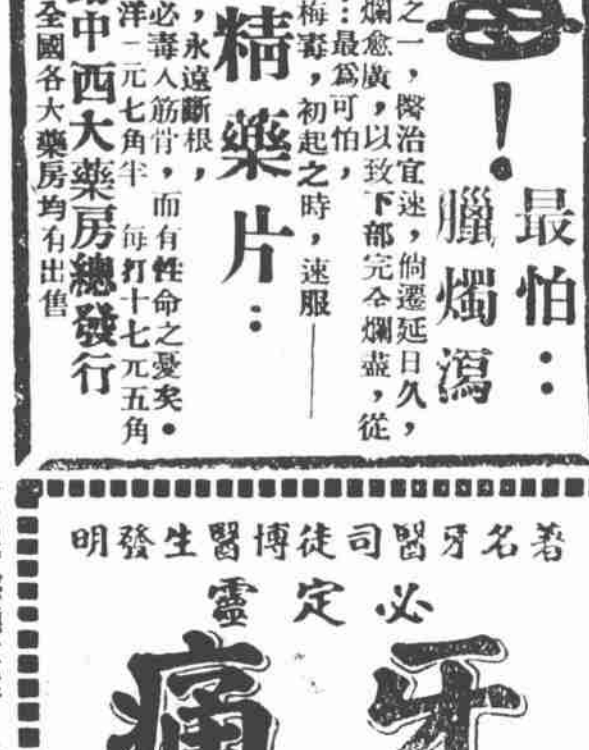 ！最怕：
臘燭瀉
之一，醫治宜速，倘遷延日久，
爛愈廣，以致下部完全爛盡，從
：最為可怕，
梅毒，初起之時，速服——
精藥片：
，永遠斷根，
必毒入筋骨，而有性命之憂矣。
洋二元七角半 每打十七元五角
中西大藥房總發行
全國各大藥房均有出售
著名牙醫司徒博醫生發明
必定靈
牙痛